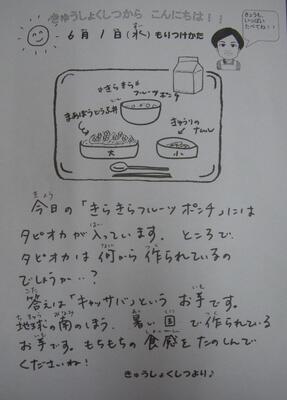 きゅうしょくしつから こんにちは！！
6月1日(水) もりつけかた
きょうも、
いっぱい
たべてね！！
"きらきら"
フルーツ
ポンチ
まあぼうどうふ丼
きゅうりの
ナムル
大
小
今日の「きらきらフルーツポンチ」には
タピオカが入っています。ところで、
タピオカは何から作られているの
でしょうか・・？
答えは「キャッサバ」という お芋です。
地球の南のほう、暑い国で作られている
お芋です。もちもちの食感をたのしんで
くださいね！
きゅうしょくしつより♪